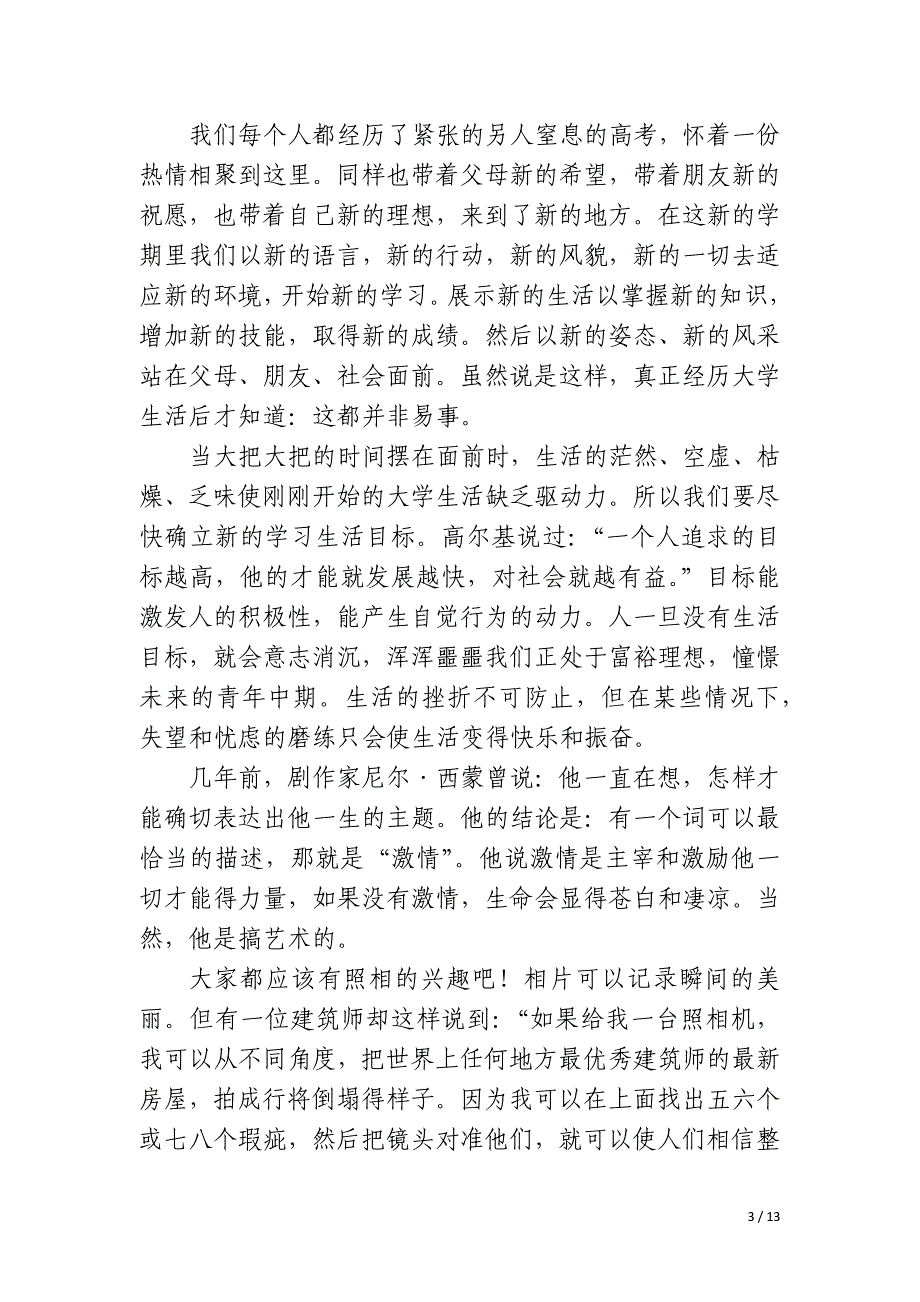 我们每个人都经历了紧张的另人窒息的高考，怀着一份
热情相聚到这里。同样也带着父母新的希望，带着朋友新的
祝愿，也带着自己新的理想，来到了新的地方。在这新的学
期里我们以新的语言，新的行动，新的风貌，新的一切去适
应新的环境，开始新的学习。展示新的生活以掌握新的知识，
增加新的技能，取得新的成绩。然后以新的姿态、新的风采
站在父母、朋友、社会面前。虽然说是这样，真正经历大学
生活后才知道：这都并非易事。
当大把大把的时间摆在面前时，生活的茫然、空虚、枯
燥、乏味使刚刚开始的大学生活缺乏驱动力。所以我们要尽
快确立新的学习生活目标。高尔基说过：“一个人追求的目
标越高，他的才能就发展越快，对社会就越有益。”目标能
激发人的积极性，能产生自觉行为的动力。人一旦没有生活
目标，就会意志消沉，浑浑噩噩我们正处于富裕理想，憧憬
未来的青年中期。生活的挫折不可防止，但在某些情况下，
失望和忧虑的磨练只会使生活变得快乐和振奋。
几年前，剧作家尼尔·西蒙曾说：他一直在想，怎样才
能确切表达出他一生的主题。他的结论是：有一个词可以最
恰当的描述，那就是“激情”。他说激情是主宰和激励他一
切才能得力量，如果没有激情，生命会显得苍白和凄凉。当
然，他是搞艺术的。
大家都应该有照相的兴趣吧！相片可以记录瞬间的美
丽。但有一位建筑师却这样说到：“如果给我一台照相机，
我可以从不同角度，把世界上任何地方最优秀建筑师的最新
房屋，拍成行将倒塌得样子。因为我可以在上面找出五六个
或七八个瑕疵，然后把镜头对准他们，就可以使人们相信整
3 / 13